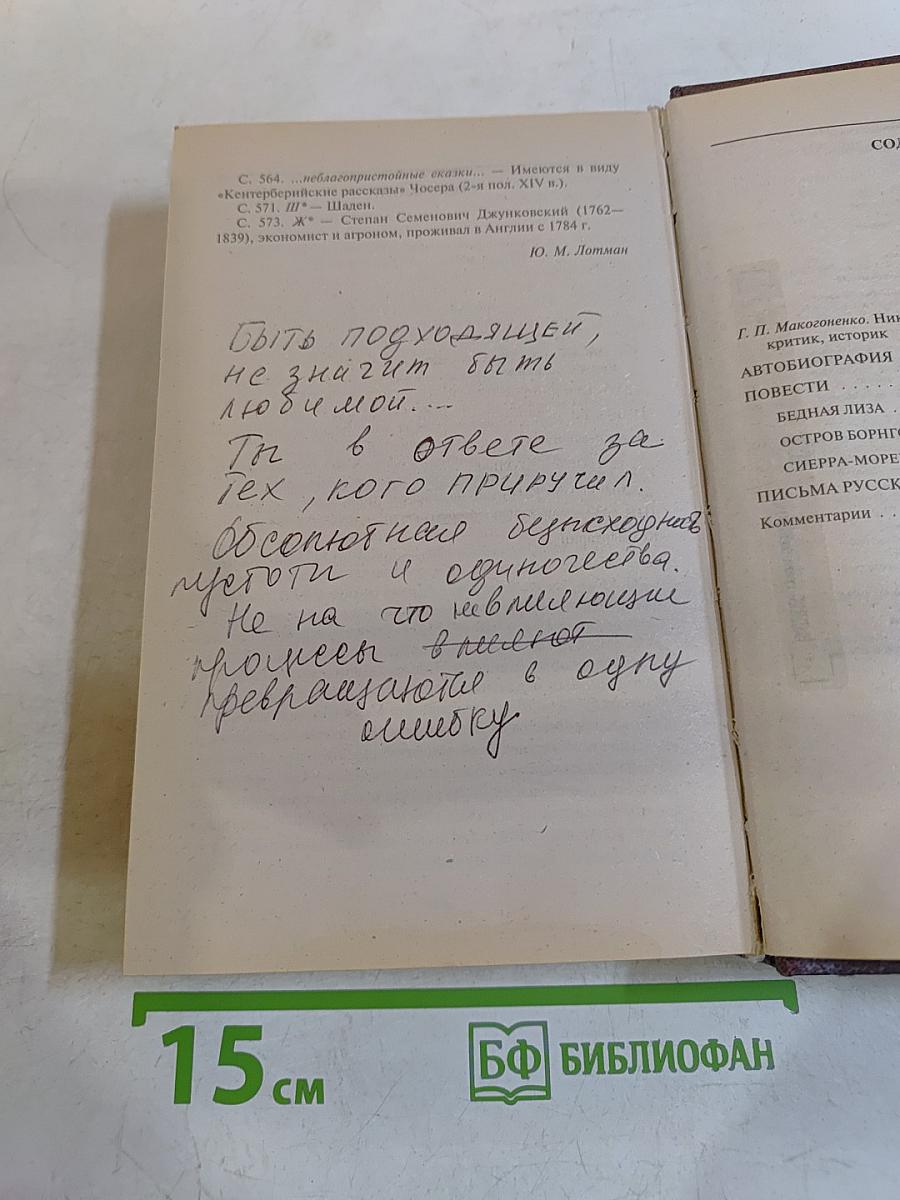 С. 564. ...неблагопристойные сказки... — Имеются в виду
«Кентерберийские рассказы» Чосера (2-я пол. XIV в.).
С. 571. Ш* — Шаден.
С. 573. Ж* — Степан Семенович Джунковский (1762—
1839), экономист и агроном, проживал в Англии с 1784 г.
Ю. М. Лотман
Быть подходящей,
не значит быть
любимой....
Ты в ответе за
тех, кого приручил.
Обсолютная безысходность
пустоты и одиночества.
Не на что невлияющие
процессы влияют
превращаются в одну
ошибку
СОД
Г. П. Макогоненко. Ник
критик, историк
АВТОБИОГРАФИЯ
ПОВЕСТИ . . . . .
БЕДНАЯ ЛИЗА .
ОСТРОВ БОРНГО
СИЕРРА-МОРЕ
ПИСЬМА РУССК
Комментарии . .
15 см
БФ БИБЛИОФАН